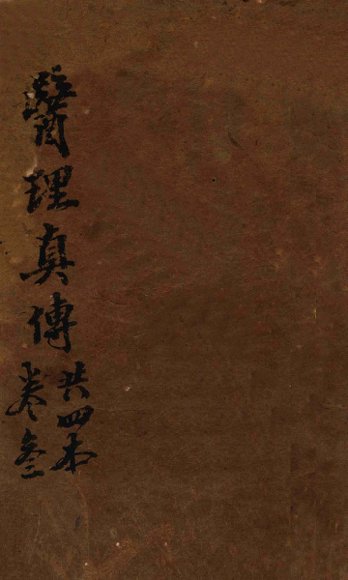 醫理真傳
共四本
卷叁